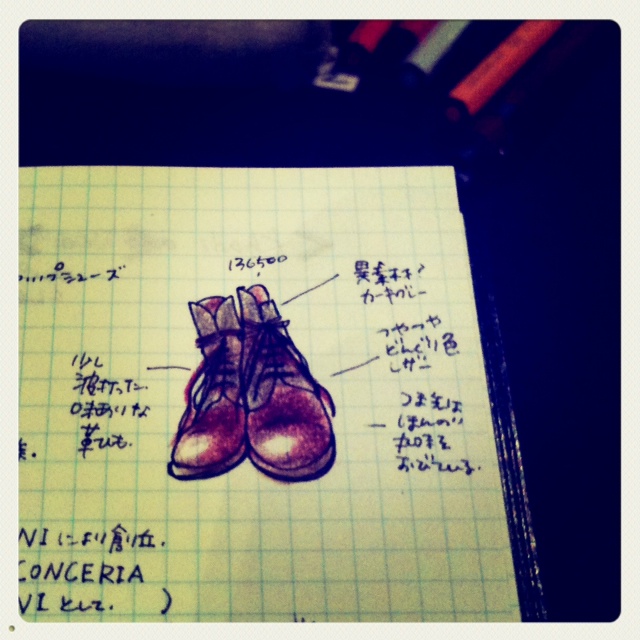 ップシューズ
136500
異素材?
カーキグレー
つやつや
どんぐり色
レザー
少し
波打った
味ありな
革ひも。
つま先は
ほんのり
丸味を
おびている。
NIにより創立.
CONCERIA
NIとして. )